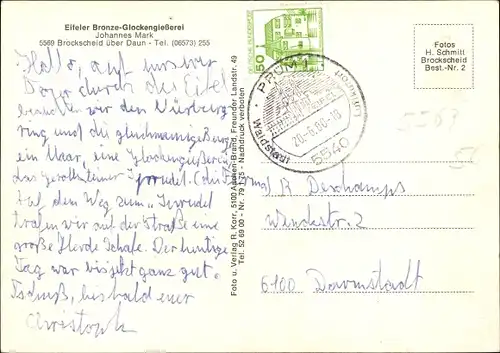 Eifeler Bronze-Glockengießerei
Johannes Mark
5569 Brockscheid über Daun - Tel. (06573) 255
Hallo, auf unserer
Tour durch die Eifel
besuchten wir den Nürburg
ring und die gleichnamige Burg,
ein Maar, eine Glockengießerei
das Gerolsteiner
Auf dem Weg zum "Sprudel
trafen wir auf der Straße eine
große Herde Schafe. Der heutige
Tag war bis jetzt ganz gut.
Tschüß, bis bald euer
Christoph
Foto u. Verlag R. Korr, 5100 Aachen-Brand, Freunder Landstr. 49
Tel. 52 69 00 - Nr. 79 1 75 - Nachdruck verboten
50
PRÜM 1
Waldstadt
5540
Fotos
H. Schmitt
Brockscheid
Best.-Nr. 2
R Deschamps
6100 Darmstadt